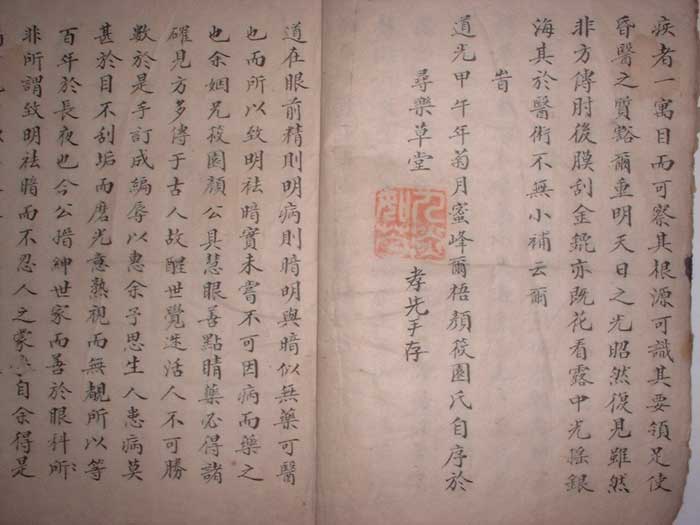 疾者一寓目而可察其根源可識其要領足使
昏醫之質豁爾重明天日之光昭然復見雖然
非方傳肘後膜刮金錕亦既花看露中光搖銀
海其於醫術不無小補云爾
旹
道光甲午年菊月蜜峰爾梧顏筱園氏自序於
尋樂草堂
孝先手存
道在眼前精則明病則暗明與暗似無藥可醫
也而所以致明祛暗實未嘗不可因病而藥之
也余姻兄筱園顏公具慧眼善點睛藥必得諸
確見方多傳于古人故醒世覺迷活人不可勝
數於是手訂成編辱以惠余予思生人患病莫
甚於目不刮垢而磨光意熟視而無覩所以等
百年於長夜也今公搢紳世家而善於眼科所
非所謂致明祛暗而不忍人之蒙自余得是